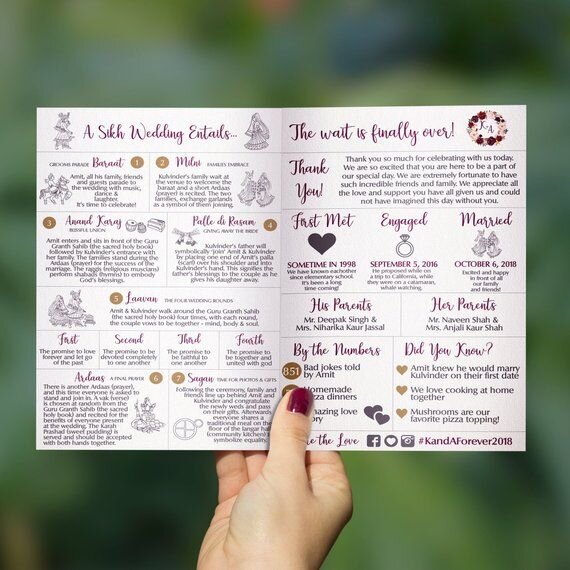 A Sikh Wedding Entails...
GROOMS PARADE Baraat 1
Amit, all his family, friends
and guests parade to
the wedding with music,
dance &
laughter.
It's time to celebrate!
2 Milni FAMILIES EMBRACE
Kulvinder's family wait at
the venue to welcome the
baraat and a short Ardaas
(prayer) is recited. The two
families, exchange garlands
as a symbol of them joining.
3 Anand Karaj
BLISSFUL UNION
Amit enters and sits in front of the Guru
Granth Sahib (the sacred holy book)
followed by Kulvinder's entrance with
her family. The families stand during the
Ardaas (prayer) for the success of the
marriage. The raagis (religious musicians)
perform shabads (hymns) to embody
God's blessings.
Palle di Rasam 4
GIVING AWAY THE BRIDE
Kulvinder's father will
symbolically 'join' Amit & Kulvinder
by placing one end of Amit's palla
(scarf) over his shoulder and into
Kulvinder's hand. This signifies the
father's blessings to the couple as he
gives his daughter away.
5 Laavan THE FOUR WEDDING ROUNDS
Amit & Kulvinder walk around the Guru Granth Sahib
(the sacred holy book) four times, with each round,
the couple vows to be together - mind, body & soul.
First
The promise to love
forever and let go
of the past
Second
The promise to be
devoted completely
to one another
Third
The promise to be
faithful to one
another
Fourth
The promise to be
together and
united with god
Ardaas A FINAL PRAYER 6
There is another Ardaas (prayer),
and this time everyone is asked to
stand and join in. A vak (verse)
is chosen at random from the
Guru Granth Sahib (the sacred
holy book) and recited for the
benefits of everyone present
at the wedding. The Karah
Prashad (sweet pudding) is
served and should be accepted
with both hands together.
7 Sagan TIME FOR PHOTOS & GIFTS
Following the ceremony, family and
friends line up behind Amit and
Kulvinder and congratulate
the newly weds and pass
on their gifts. Afterwards,
everyone shares a
traditional meal on the
floor of the langar hall
(community kitchen)
symbolize equality.
The wait is finally over!
K A
Thank
You!
Thank you so much for celebrating with us today.
We are so excited that you are here to be a part of
our special day. We are extremely fortunate to have
such incredible friends and family. We appreciate all
the love and support you have all given us and could
not have imagined this day without you.
First Met
SOMETIME IN 1998
We have known eachother
since elementary school.
It's been a long time
coming!
Engaged
SEPTEMBER 5, 2016
He proposed while on
a trip to California, while
they were on a catamaran,
whale watching.
Married
OCTOBER 6, 2018
Excited and happy
in front of all
our family
and friends!
His Parents
Mr. Deepak Singh &
Mrs. Niharika Kaur Jassal
Her Parents
Mr. Naveen Shah &
Mrs. Anjali Kaur Shah
By the Numbers
851 Bad jokes told
by Amit
Homemade
dinners
love
Did You Know?
Amit knew he would marry
Kulvinder on their first date
We love cooking at home
together
Mushrooms are our
favorite pizza topping!
the Love #KandAForever2018